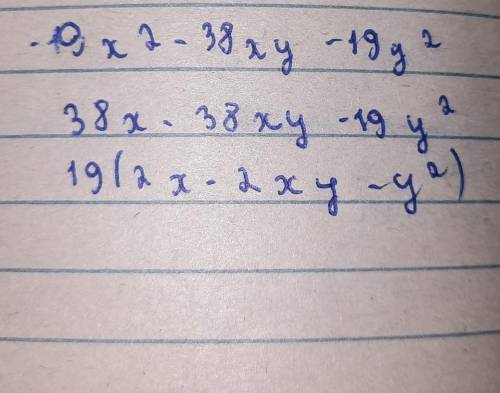 -19x2 - 38xy - 19y²
38x - 38xy - 19y²
19(2x - 2xy - y²)